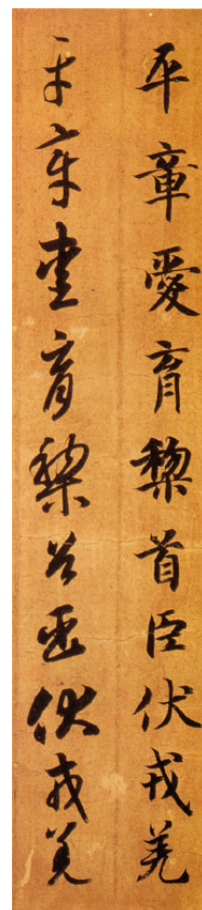 平章愛育黎首臣伏戎羌
平章愛育黎首臣伏戎羌